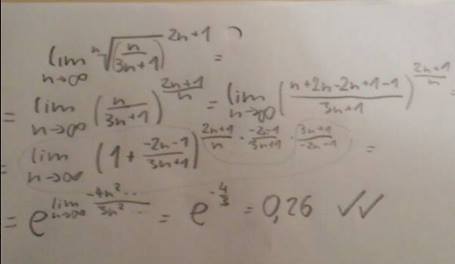 lim n→∞ ⁿ√(n/(3n+1))^(2n+1) =
= lim n→∞ (n/(3n+1))^((2n+1)/n) = lim n→∞ ((n+2n-2n+1-1)/(3n+1))^((2n+1)/n) =
= lim n→∞ (1 + (-2n-1)/(3n+1))^((2n+1)/n · (-2n-1)/(3n+1) · (3n+1)/(-2n-1)) =
= e^(lim n→∞ (-4n² ...)/(3n² ...)) = e^(-4/3) = 0,26 ✓✓